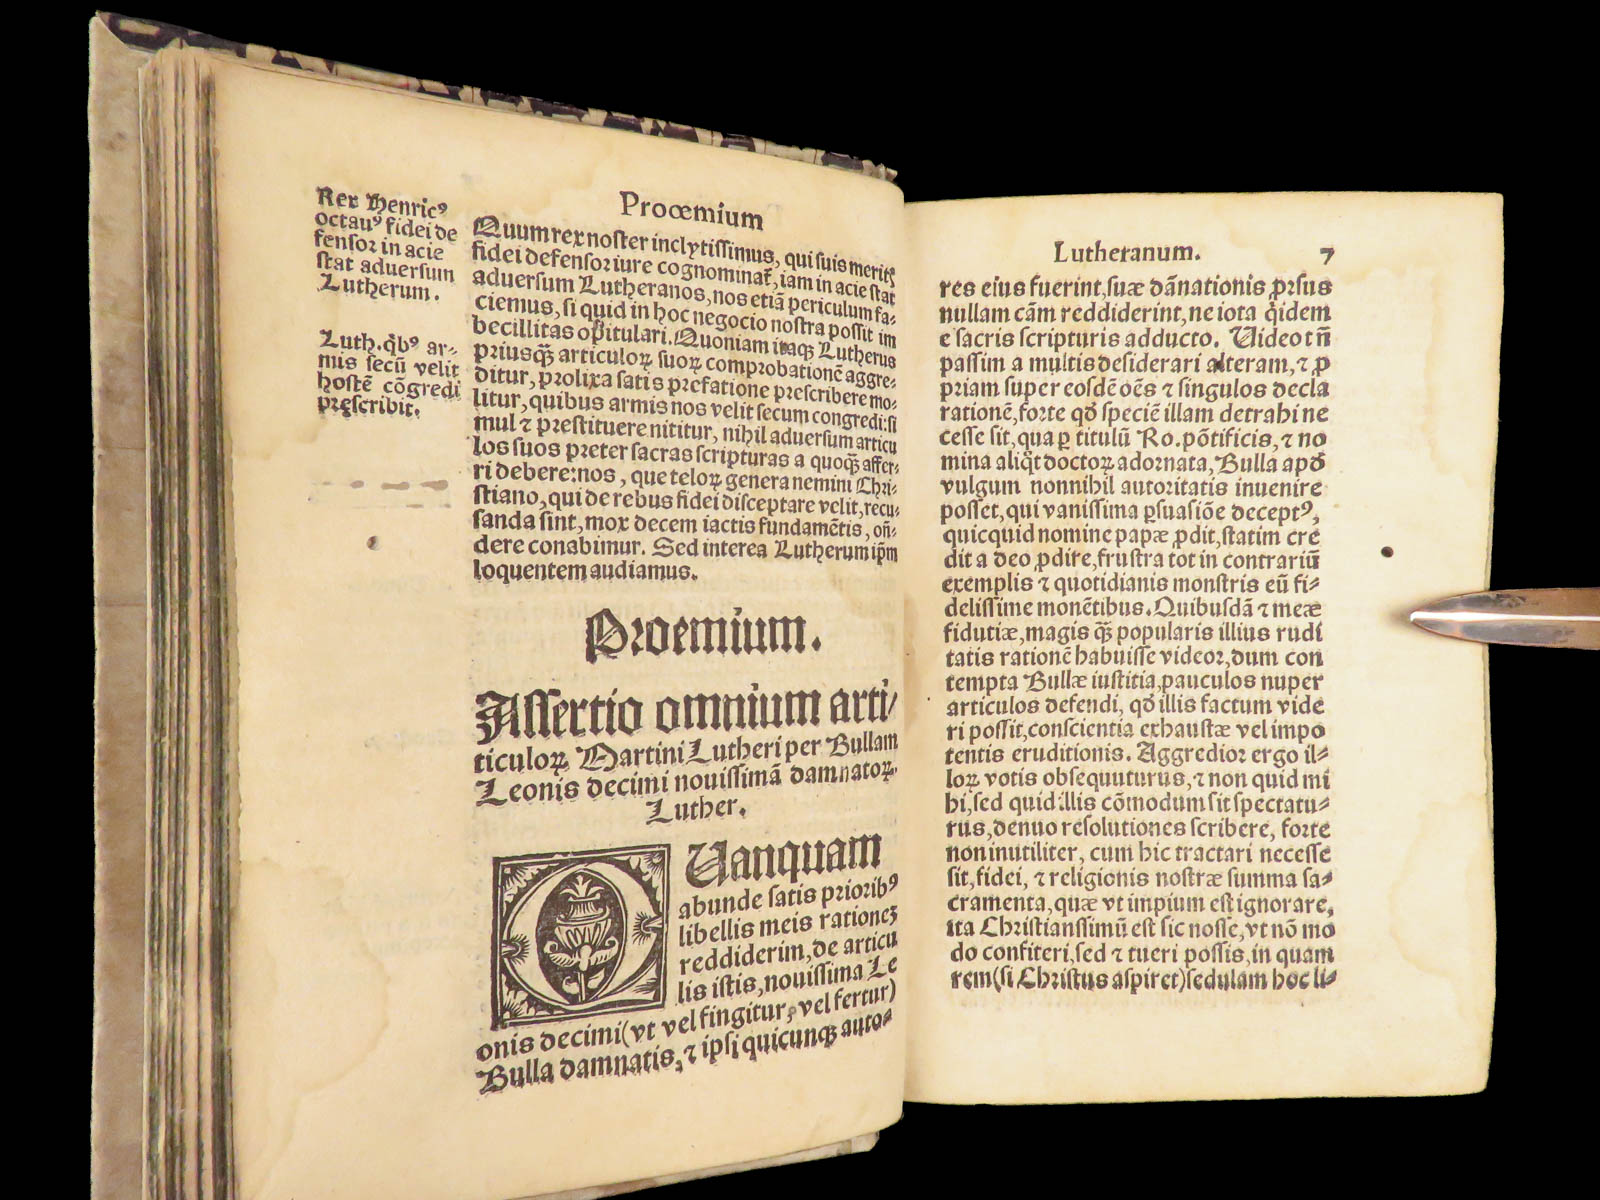 Proœmium
Rex Henricꝰ
octauꝰ fidei de
fensor in acie
stat aduersum
Lutherum.
Luth. qͥbꝰ ar-
mis secū velit
hostē cōgredi
pręscribit.
Quum rex noster inclytissimus, qui suis meritꝭ
fidei defensor iure cognominat̃, iam in acie stat
aduersum Lutheranos, nos etiā periculum fa-
ciemus, si quid in hoc negocio nostra possit im
becillitas opitulari. Quoniam itaqꝫ Lutherus
priusqꝫ̃ articuloꝝ suoꝝ comprobationē aggre-
ditur, prolixa satis prefatione prescribere mo-
litur, quibus armis nos velit secum congredi: si
mul ⁊ prestituere nititur, nihil aduersum articu
los suos preter sacras scripturas a quoqꝫ̃ affer-
ri debere: nos, que teloꝝ genera nemini Chri-
stiano, qui de rebus fidei disceptare velit, recu-
sanda sint, mox decem iactis fundamētis, oñ-
dere conabimur. Sed interea Lutherum ip̄m
loquentem audiamus.
Proemium.
Assertio omnium arti-
ticuloꝝ Martini Lutheri per Bullam
Leonis decimi nouissimā damnatoꝝ.
Luther.
QUanquam
abunde satis prioribꝰ
libellis meis rationeꝫ
reddiderim, de articu
lis istis, nouissima Le
onis decimi (vt vel fingitur, vel fertur)
Bulla damnatis, ⁊ ipsi quicunqꝫ auto-
Lutheranum. 7
res eius fuerint, suæ dānationis ꝓrsus
nullam cām reddiderint, ne iota qͥdem
e sacris scripturis adducto. Uideo tñ
passim a multis desiderari alteram, ⁊ ꝓ
priam super eosdē oēs ⁊ singulos decla
rationē, forte qđ speciē illam detrahi ne
cesse sit, qua ꝑ titulū Ro. pōtificis, ⁊ no
mina aliqͦt doctoꝝ adornata, Bulla apđ
vulgum nonnihil autoritatis inuenire
posset, qui vanissima ꝑsuasiōe deceptꝰ,
quicquid nomine papæ ꝓdit, statim cre
dit a deo ꝓdire, frustra tot in contrariū
exemplis ⁊ quotidianis monstris eū fi-
delissime monētibus. Quibusdā ⁊ meæ
fidutiæ, magis qꝫ̃ popularis illius rudi
tatis rationē habuisse videor, dum con
tempta Bullæ iustitia, pauculos nuper
articulos defendi, qđ illis factum vide
ri possit, conscientia exhaustæ vel impo
tentis eruditionis. Aggredior ergo il-
loꝝ votis obsequuturus, ⁊ non quid mi
hi, sed quid illis cōmodum sit spectatu-
rus, denuo resolutiones scribere, forte
non inutiliter, cum hic tractari necesse
sit, fidei, ⁊ religionis nostræ summa sa-
cramenta, quæ vt impium est ignorare,
ita Christianissimū est sic nosse, vt nō mo
do confiteri, sed ⁊ tueri possis, in quam
rem (si Christus aspiret) sedulam hoc li-